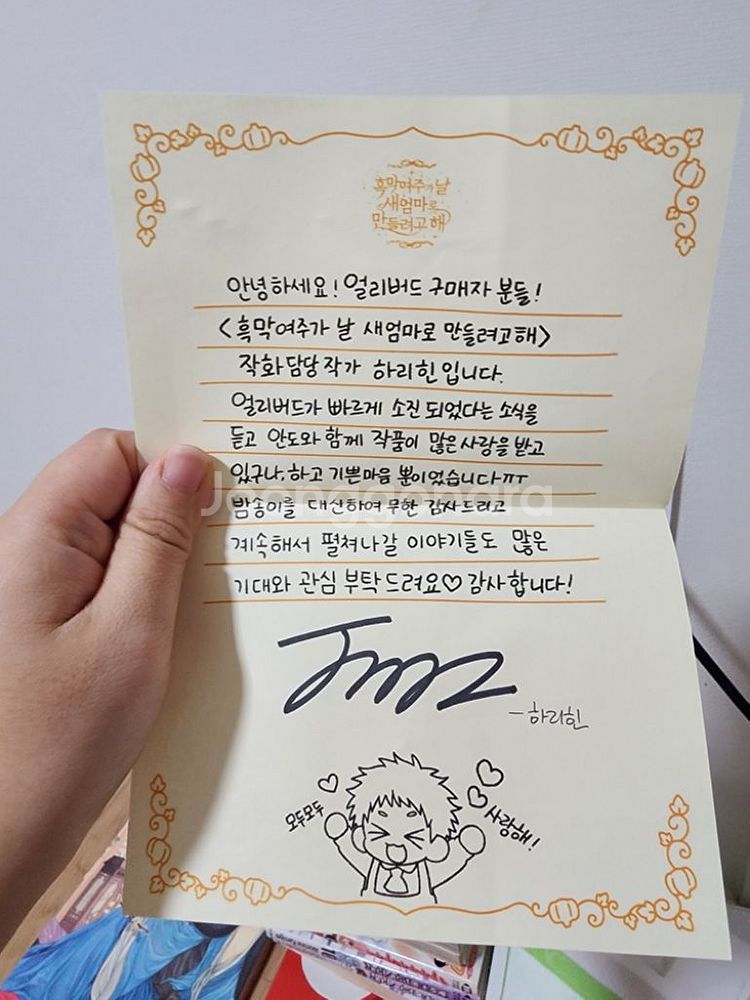 흑막여주가 날
새엄마로
만들려고 해
안녕하세요! 얼리버드 구매자 분들!
<흑막여주가 날 새엄마로 만들려고해>
작화 담당 작가 하리힌입니다.
얼리버드가 빠르게 소진 되었다는 소식을
듣고 안도와 함께 작품이 많은 사랑을 받고
있구나, 하고 기쁜마음 뿐이었습니다ㅠㅜ
Joonggonara
밤송이를 대신하여 무한 감사드리고
계속해서 펼쳐나갈 이야기들도 많은
기대와 관심 부탁드려요♡ 감사합니다!
-하리힌
모두모두
사랑해!